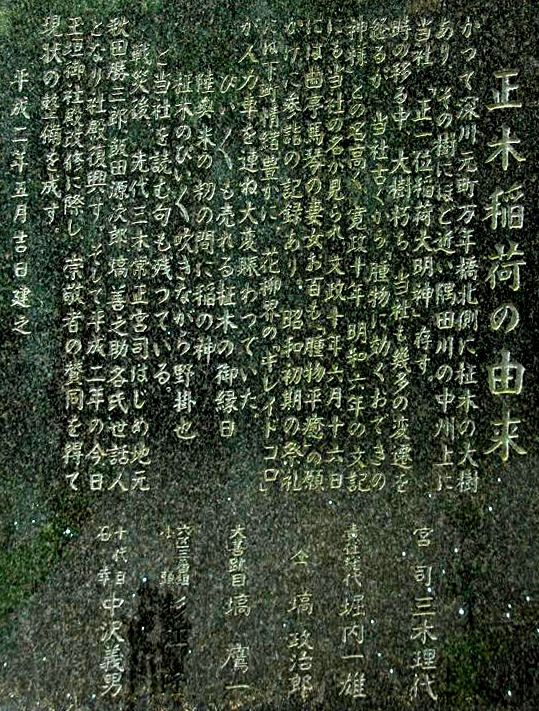 正木稲荷の由来
かつて深川元町万年橋北側に柾木の大樹
あり、その樹にほど近い隅田川の中州上に
当社「正一位稲荷大明神」存す。
時の移る中、大樹朽ち、当社も幾多の変遷を
経るが、当社古くから腫物に効くおできの
神様、との名高く、寛政十年、明和六年の文記
にも当社の名が見られ、文政十年六月十六日
には曲亭馬琴の妻女お百も「腫物平癒」の願
かけに参詣の記録あり。昭和初期の祭礼
には下町情緒豊かに、花柳界の「キレイドコロ」
が人力車を連ね大変賑わっていた。
びいくくも売れる柾木の御縁日
陸奥米の籾の間に稲の神
柾木のびいく吹きながら野掛也
と当社を読む句も残っている。
戦災後、先代三木常正宮司はじめ地元
秋田勝三郎、飯田源次郎、塙善之助各氏世話人
となり社殿復興す。そして平成二年の今日
玉垣御社殿改修に際し、崇敬者の賛同を得て
現状の整備を成す。
平成二年五月吉日建之
宮司 三木理代
責任総代 堀内一雄
仝 塙政治郎
大喜跡目 塙鷹一
小頭
十代目
石幸 中沢義男